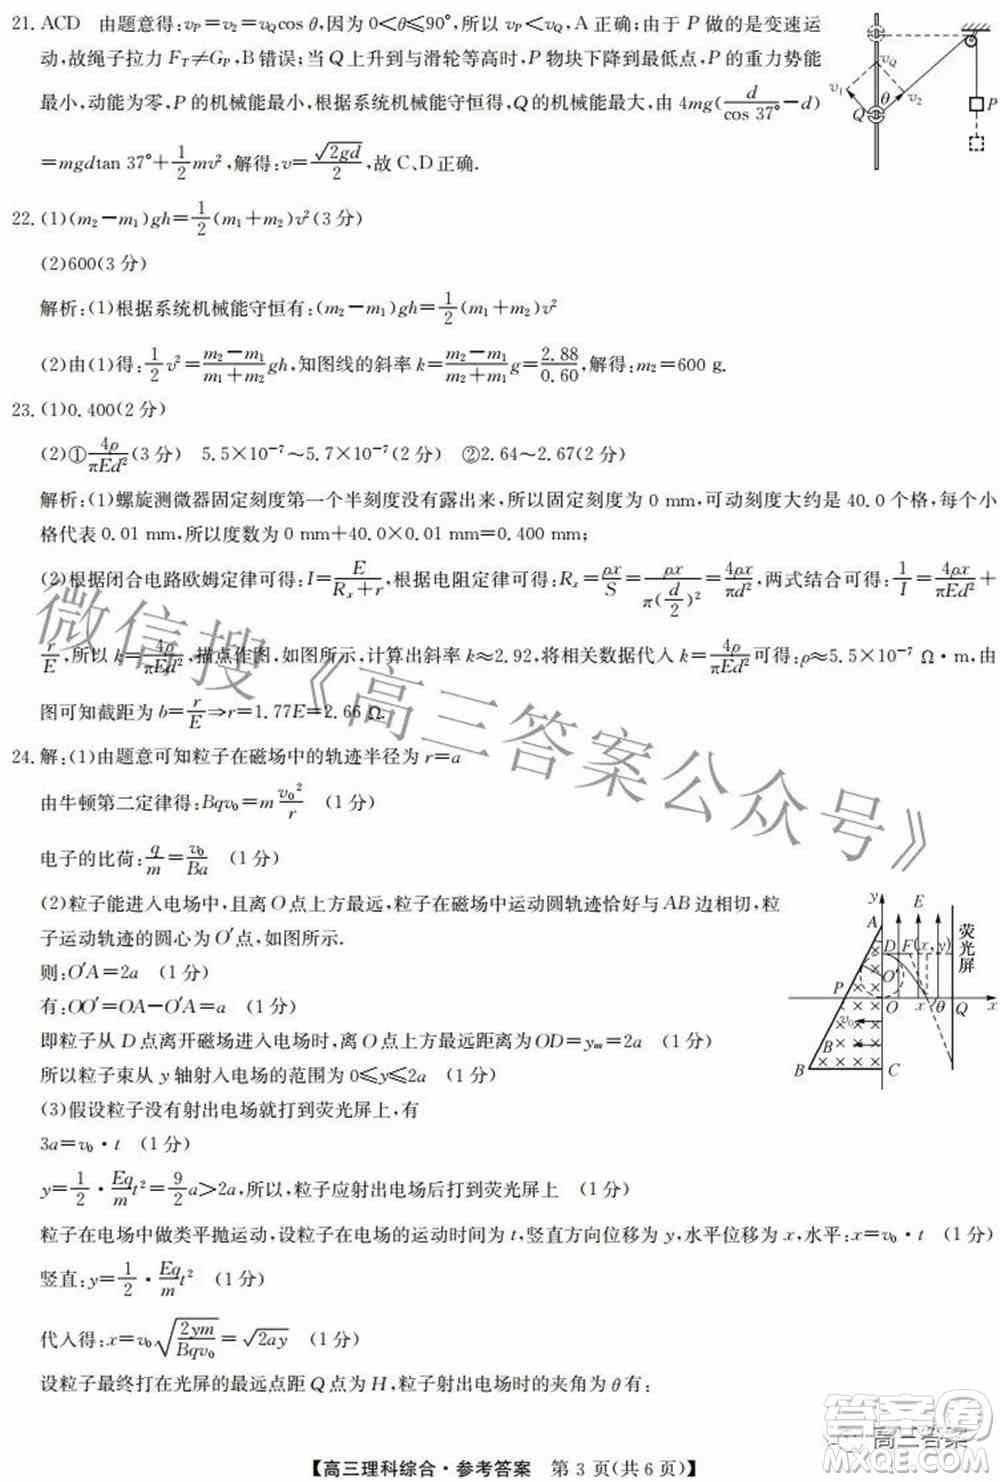 21. ACD　由题意得:v_P=v₂=v_Qcos θ,因为 0<θ⩽90°,所以 v_P<v_Q,A 正确;由于 P 做的是变速运
动,故绳子拉力 F_T≠G_P,B 错误;当 Q 上升到与滑轮等高时,P 物块下降到最低点,P 的重力势能
最小,动能为零,P 的机械能最小,根据系统机械能守恒得,Q的机械能最大,由 4mg(d/cos 37°−d)
=mgdtan 37°+1/2 mv²,解得:v=√(2gd)/2,故 C、D 正确.
v₁ v_Q θ v₂ Q P
22. (1)(m₂−m₁)gh=1/2(m₁+m₂)v²(3 分)
(2)600(3 分)
解析:(1)根据系统机械能守恒有:(m₂−m₁)gh=1/2(m₁+m₂)v²
(2)由(1)得:1/2 v²=(m₂−m₁)/(m₁+m₂) gh,知图线的斜率 k=(m₂−m₁)/(m₂+m₁) g=2.88/0.60,解得:m₂=600 g.
23. (1)0.400(2 分)
(2)①4ρ/πEd²(3 分)　5.5×10⁻⁷～5.7×10⁻⁷(2 分)　②2.64～2.67(2 分)
解析:(1)螺旋测微器固定刻度第一个半刻度没有露出来,所以固定刻度为 0 mm,可动刻度大约是 40.0 个格,每个小
格代表 0.01 mm,所以度数为 0 mm+40.0×0.01 mm=0.400 mm;
(2)根据闭合电路欧姆定律可得:I=E/(Rₓ+r),根据电阻定律可得:Rₓ=ρx/S=ρx/π(d/2)²=4ρx/πd²,两式结合可得:1/I=4ρx/πEd²+
r/E,所以 k=4ρ/πEd²,描点作图,如图所示,计算出斜率 k≈2.92,将相关数据代入 k=4ρ/πEd²可得:ρ≈5.5×10⁻⁷ Ω·m,由
图可知截距为 b=r/E⇒r=1.77E=2.66 Ω.
24. 解:(1)由题意可知粒子在磁场中的轨迹半径为 r=a
由牛顿第二定律得:Bqv₀=m v₀²/r　(1 分)
电子的比荷:q/m=v₀/Ba　(1 分)
(2)粒子能进入电场中,且离 O 点上方最远,粒子在磁场中运动圆轨迹恰好与 AB 边相切,粒
子运动轨迹的圆心为 O′点,如图所示.
则:O′A=2a　(1 分)
有:OO′=OA−O′A=a　(1 分)
即粒子从 D 点离开磁场进入电场时,离 O 点上方最远距离为 OD=yₘ=2a　(1 分)
所以粒子束从 y 轴射入电场的范围为 0⩽y⩽2a　(1 分)
y E A D F(x,y) 荧光屏 O′ P O x θ Q x v₀ B B C
(3)假设粒子没有射出电场就打到荧光屏上,有
3a=v₀·t　(1 分)
y=1/2·Eq/m t²=9/2 a>2a,所以,粒子应射出电场后打到荧光屏上　(1 分)
粒子在电场中做类平抛运动,设粒子在电场的运动时间为 t,竖直方向位移为 y,水平位移为 x,水平:x=v₀·t　(1 分)
竖直:y=1/2·Eq/m t²　(1 分)
代入得:x=v₀√(2ym/Bqv₀)=√(2ay)　(1 分)
设粒子最终打在光屏的最远点距 Q 点为 H,粒子射出电场时的夹角为 θ 有:
【高三理科综合·参考答案　第 3 页(共 6 页)】
微信搜《高三答案公众号》
高三答案
答案圈
MXQE.COM